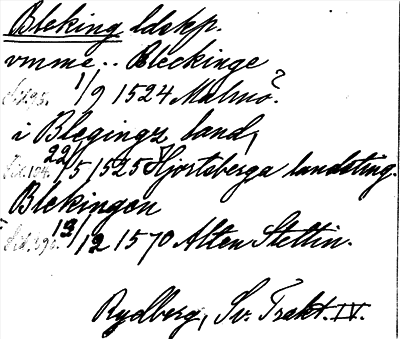 Bleking ldskp.
vmme .. Bleckinge
Sid. 95. 1/9 1524 Malmö?
i Blegingz land,
Sid. 104. 22/5 1525 Hjortsberga landsting.
Blekingen
13/12 1570 Alten Stettin.
Rydberg, Sv. Trakt. IV.